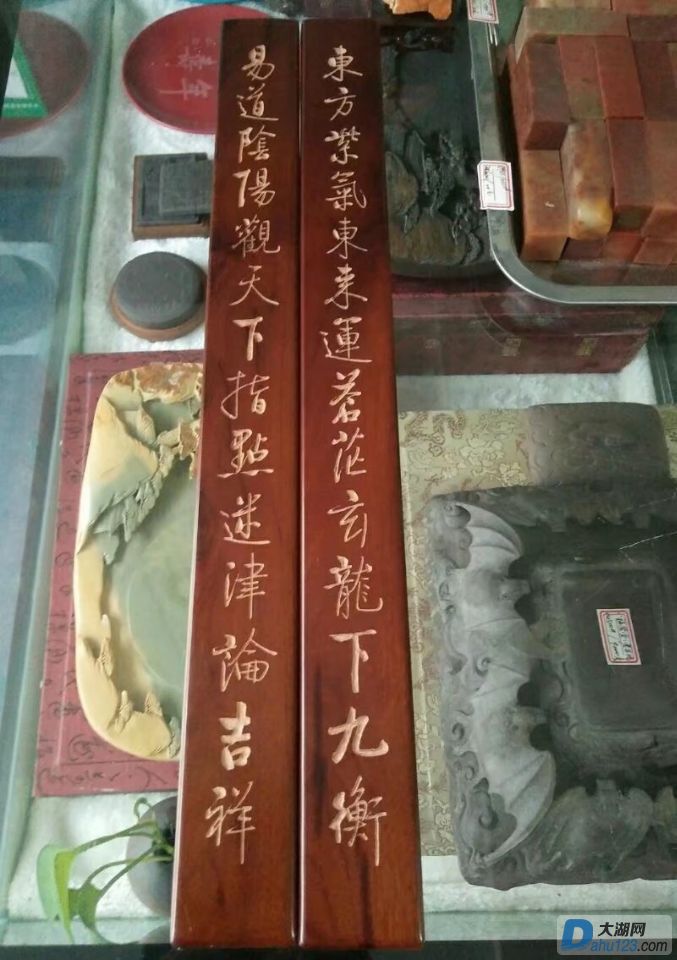 東方紫氣東来運蒼茫玄龍下九衡
易道陰陽觀天下指點迷津論吉祥
大湖网
Dahu123.com